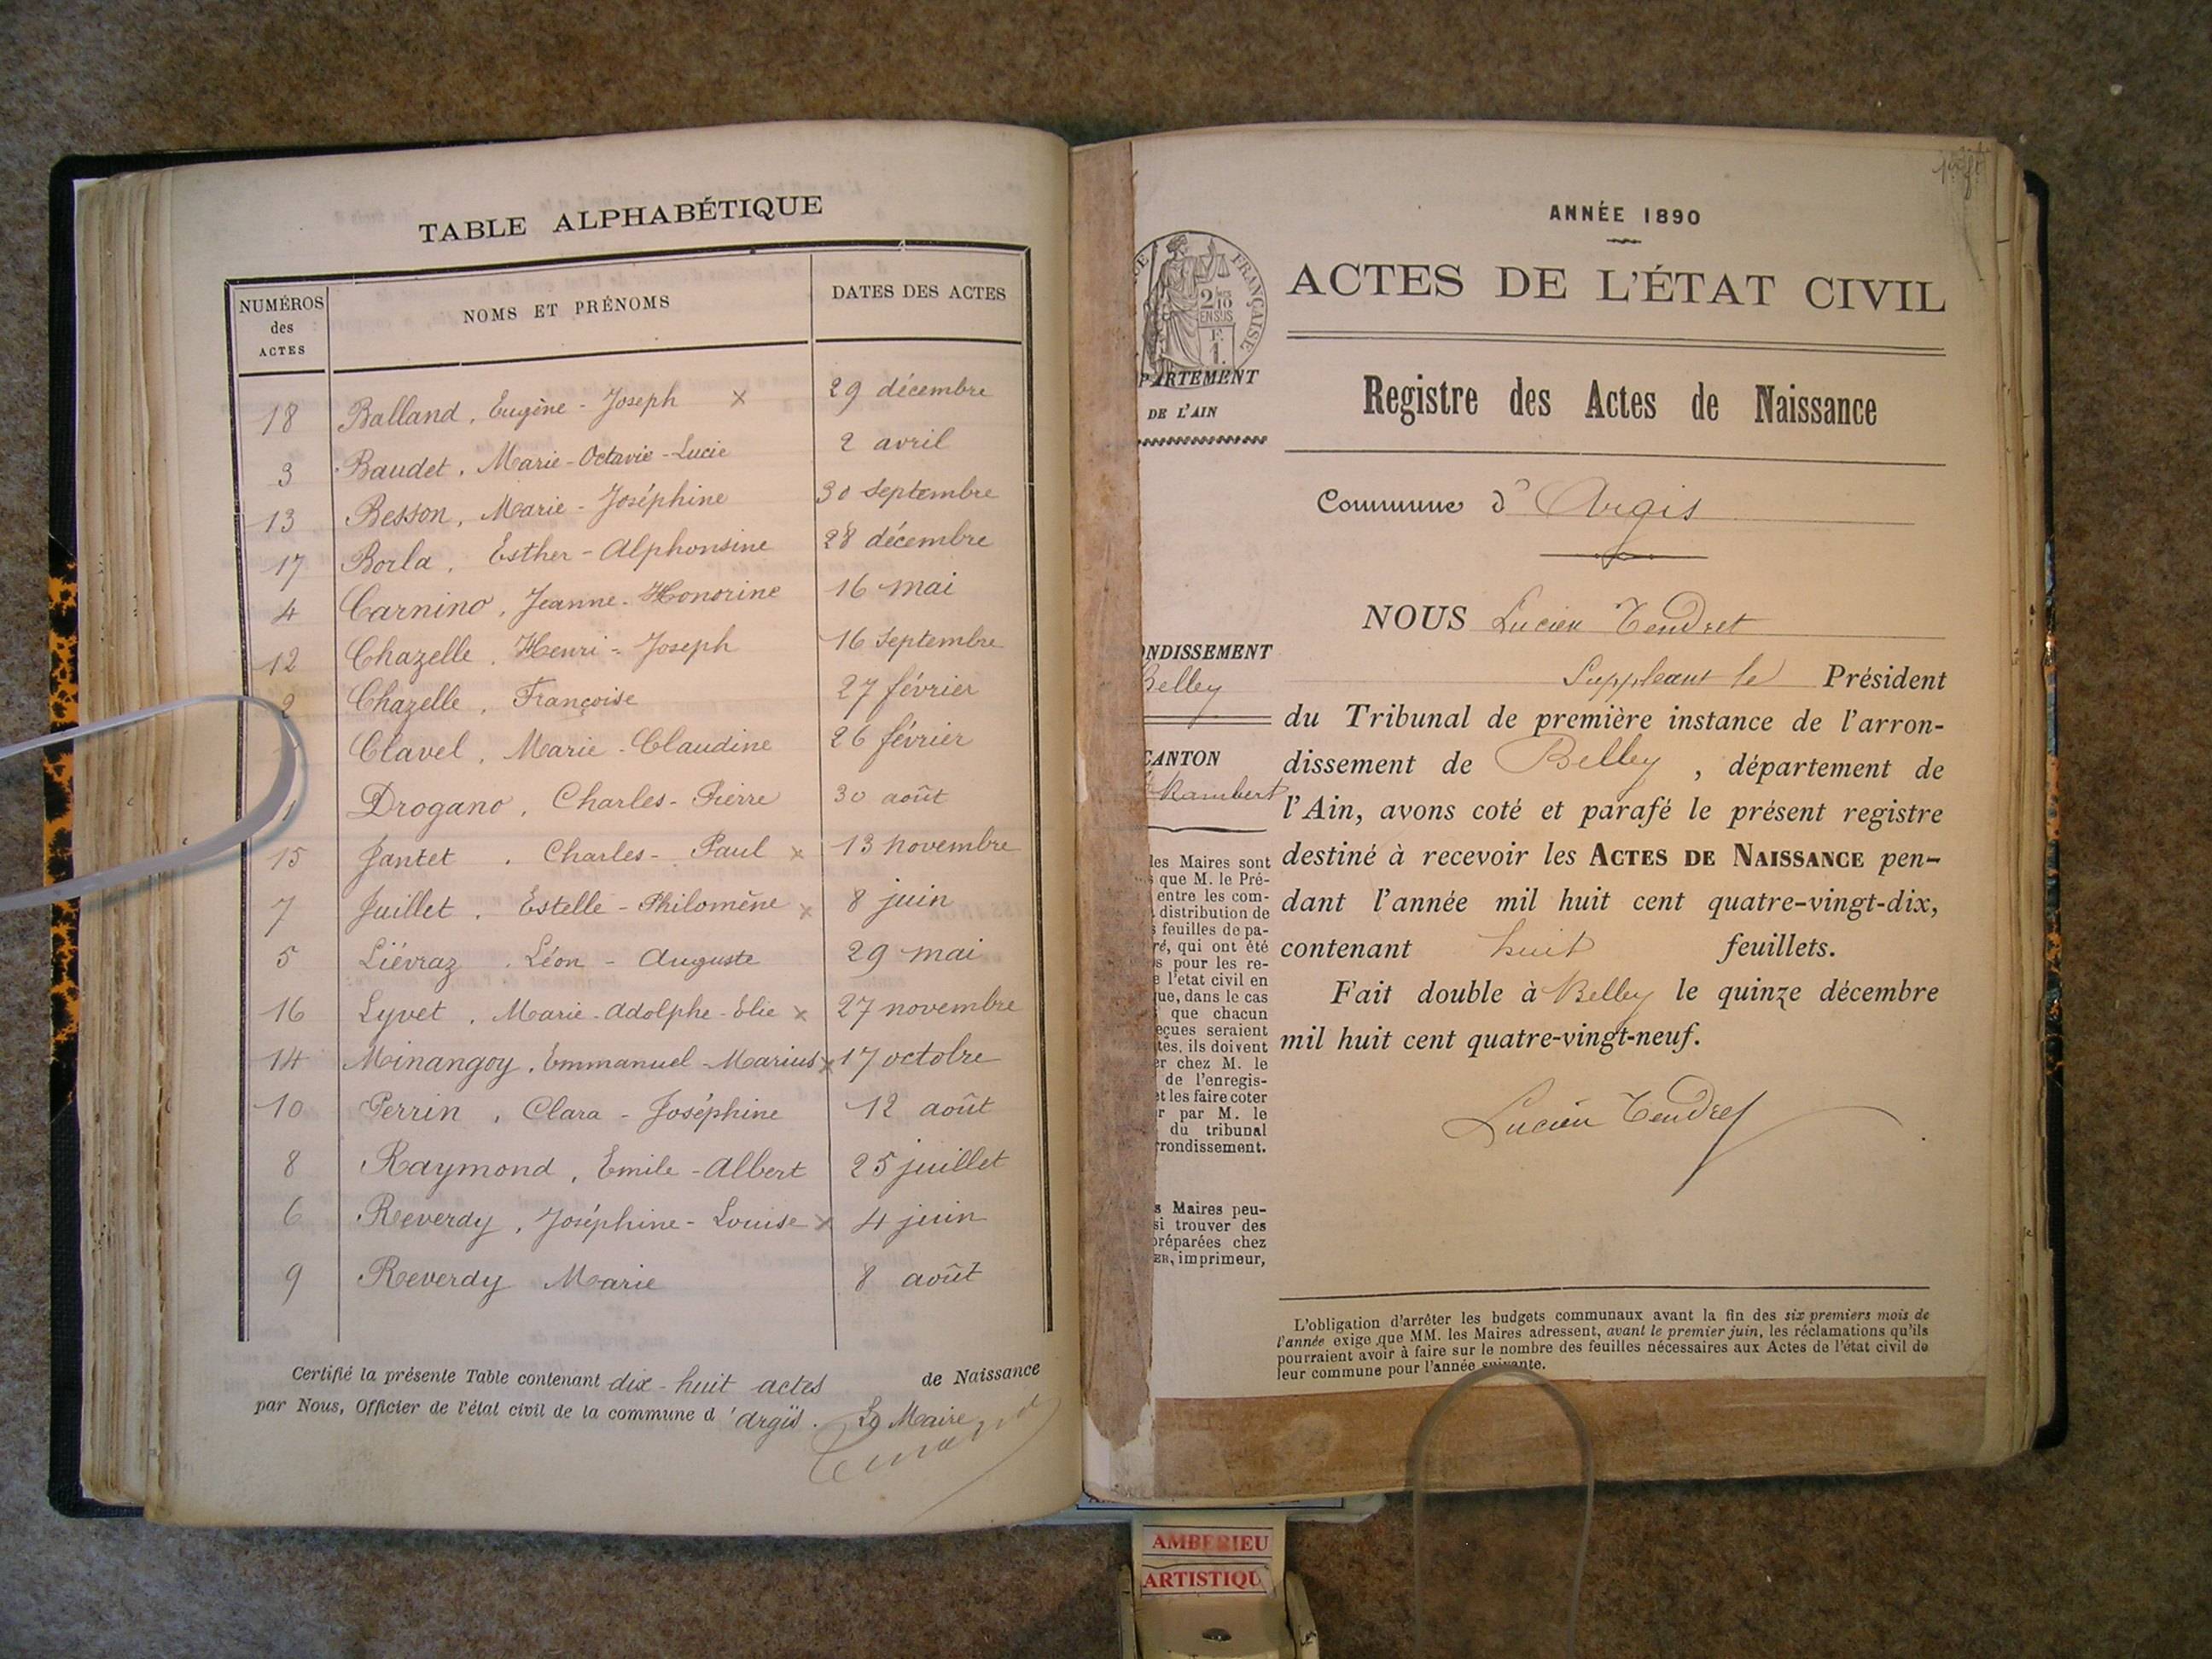 TABLE ALPHABÉTIQUE
NUMÉROS des ACTES NOMS ET PRÉNOMS DATES DES ACTES
18 Balland, Eugène-Joseph x 29 décembre
3 Baudet, Marie-Octavie-Lucie 2 avril
13 Besson, Marie-Joséphine 30 septembre
17 Borla, Esther-Alphonsine 28 décembre
4 Carnino, Jeanne-Honorine 16 mai
12 Chazelle, Henri-Joseph 16 septembre
2 Chazelle, Françoise 27 février
Clavel, Marie-Claudine 26 février
Drogano, Charles-Pierre 30 août
15 Jantet, Charles-Paul x 13 novembre
7 Juillet, Estelle-Philomène x 8 juin
5 Liévraz, Léon-Auguste 29 mai
16 Lyvet, Marie-Adolphe-Elie x 27 novembre
14 Minangoy, Emmanuel-Marius x 17 octobre
10 Perrin, Clara-Joséphine 12 août
8 Raymond, Emile-Albert 25 juillet
6 Reverdy, Joséphine-Louise x 4 juin
9 Reverdy Marie 8 août
Certifié la présente Table contenant dix-huit actes de Naissance
par Nous, Officier de l'état civil de la commune d'Argis. Le Maire
ANNÉE 1890
ACTES DE L'ÉTAT CIVIL
Registre des Actes de Naissance
Commune d'Argis
NOUS Lucien Tendret
Suppléant le Président
du Tribunal de première instance de l'arron-
dissement de Belley, département de
l'Ain, avons coté et parafé le présent registre
destiné à recevoir les ACTES DE NAISSANCE pen-
dant l'année mil huit cent quatre-vingt-dix,
contenant huit feuillets.
Fait double à Belley le quinze décembre
mil huit cent quatre-vingt-neuf.
Lucien Tendret
L'obligation d'arrêter les budgets communaux avant la fin des six premiers mois de
l'année exige que MM. les Maires adressent, avant le premier juin, les réclamations qu'ils
pourraient avoir à faire sur le nombre des feuilles nécessaires aux Actes de l'état civil de
leur commune pour l'année suivante.
FRANÇAISE
2/10
EN SUS
F.
1.
PARTEMENT
DE L'AIN
NDISSEMENT
Belley
CANTON
Rambert
les Maires sont
que M. le Pré-
entre les com-
distribution de
feuilles de pa-
ré, qui ont été
s pour les re-
e l'etat civil en
ue, dans le cas
que chacun
eçues seraient
tes, ils doivent
er chez M. le
de l'enregis-
et les faire coter
r par M. le
du tribunal
rrondissement.
s Maires peu-
si trouver des
préparées chez
ER, imprimeur,
AMBERIEU
ARTISTIQU